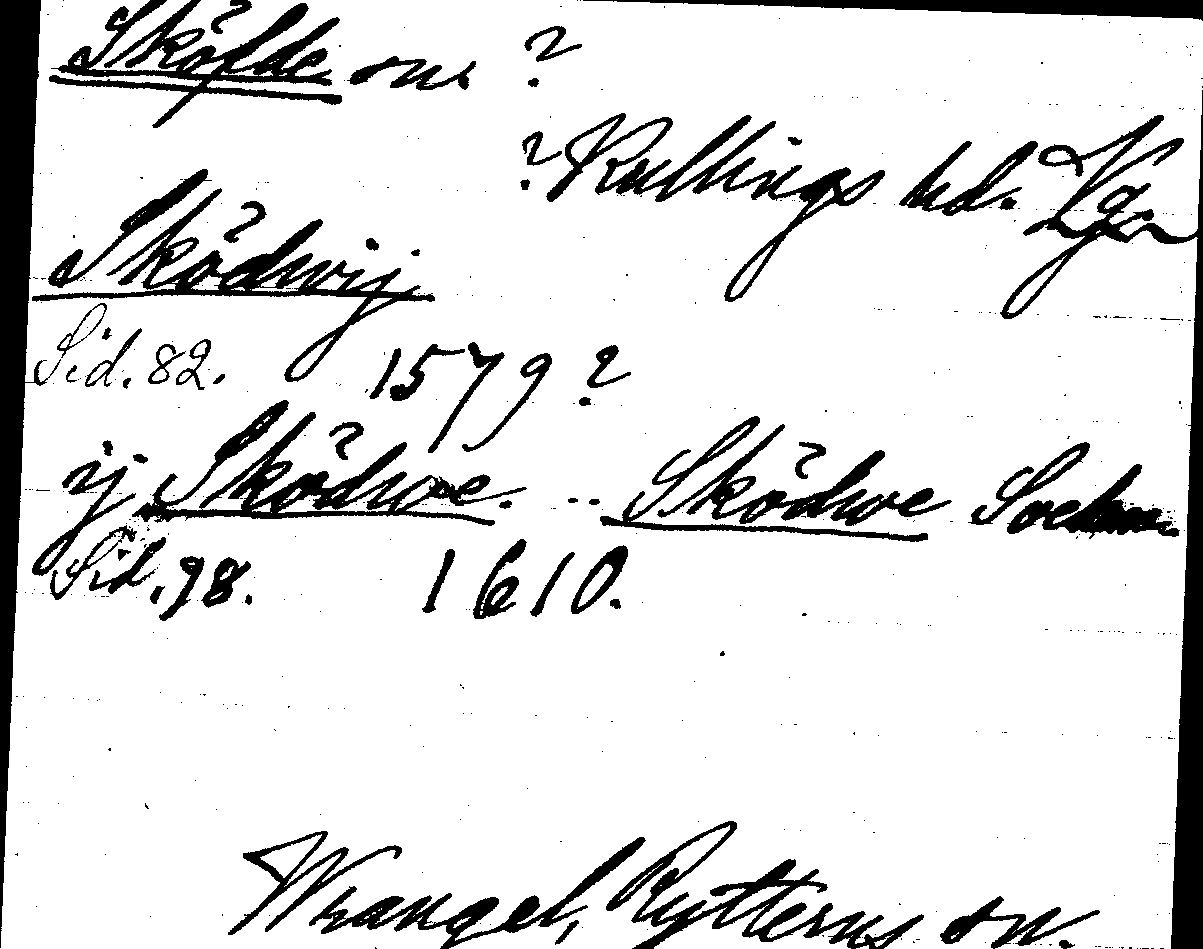 Sköfde sn. ?
? Kullings hd. Vg.
Sködwij
Sid. 82. 1579 ?
ij Sködwe. .. Sködwe Sochn
Sid. 98. 1610.
Wrangel, Rytterns sn.